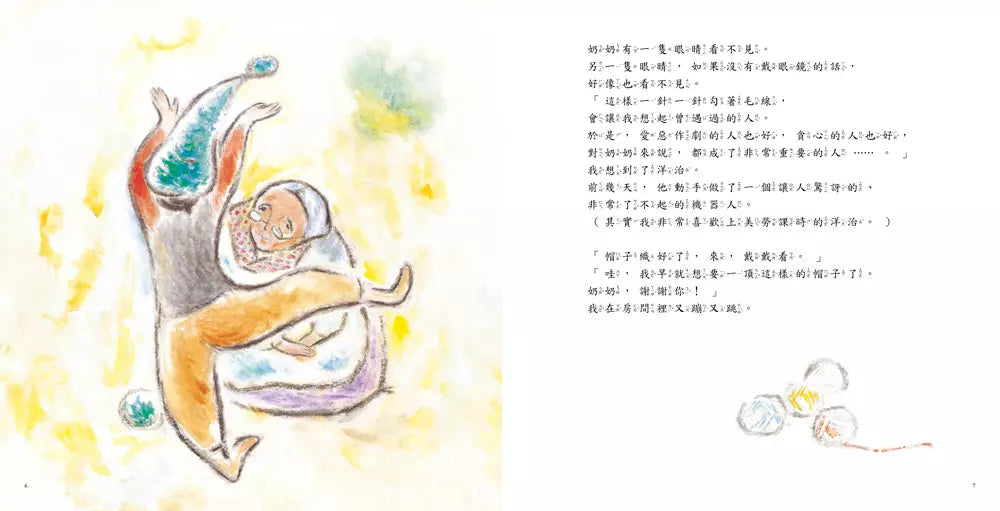 奶奶有一隻眼睛看不見。
另一隻眼睛，如果沒有戴眼鏡的話，
好像也看不見。
「這樣一針一針勾著毛線，
會讓我想起曾遇過的人。
於是，愛惡作劇的人也好，貪心的人也好，
對奶奶來說，都成了非常重要的人……。」
我想到了洋治。
前幾天，他動手做了一個讓人驚訝的、
非常了不起的機器人。
（其實我非常喜歡上美勞課時的洋治。）
「帽子織好了，來，戴戴看。」
「哇，我早就想要一頂這樣的帽子了。
奶奶，謝謝你！」
我在房間裡又蹦又跳。
6
7